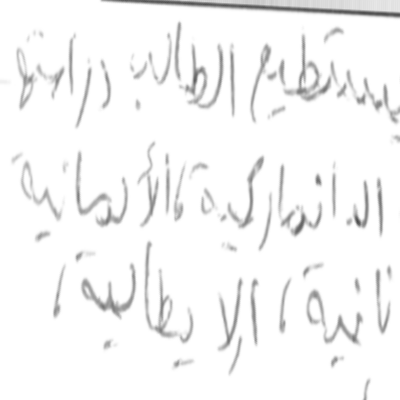 يستطيع الطالب دراسة
الدانماركية، الألمانية
ثانية، الإيطالية،